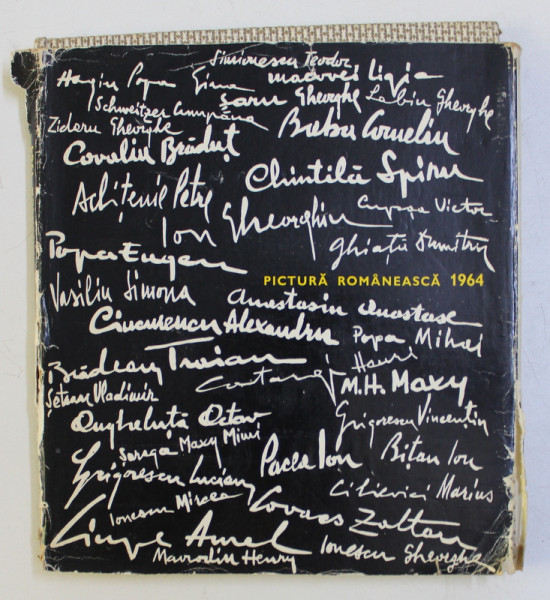 Simionescu Teodor
Hagiu Popa Gina
Macovei Ligia
Schweitzer Cumpăna
Șaru Gheorghe
Labin Gheorghe
Zidaru Gheorghe
Baba Corneliu
Covaliu Brăduț
Achițenie Petre
Chintilă Spiru
Ion Gheorghiu
Cupșa Victor
Popa Eugen
Ghiață Dumitru
PICTURĂ ROMÂNEASCĂ 1964
Vasiliu Simona
Anastasiu Anastase
Ciucurencu Alexandru
Popa Mihai
Brădean Traian
Catargi Henri
Șetran Vladimir
M.H. Maxy
Angheluță Octav
Grigorescu Vincențiu
Șoruga Maxy Mimi
Pacea Ion
Bițan Ion
Grigorescu Lucian
Cilievici Marius
Ionescu Mircea
Covacs Zoltan
Ciupe Aurel
Mavrodin Henry
Ionescu Gheorghe